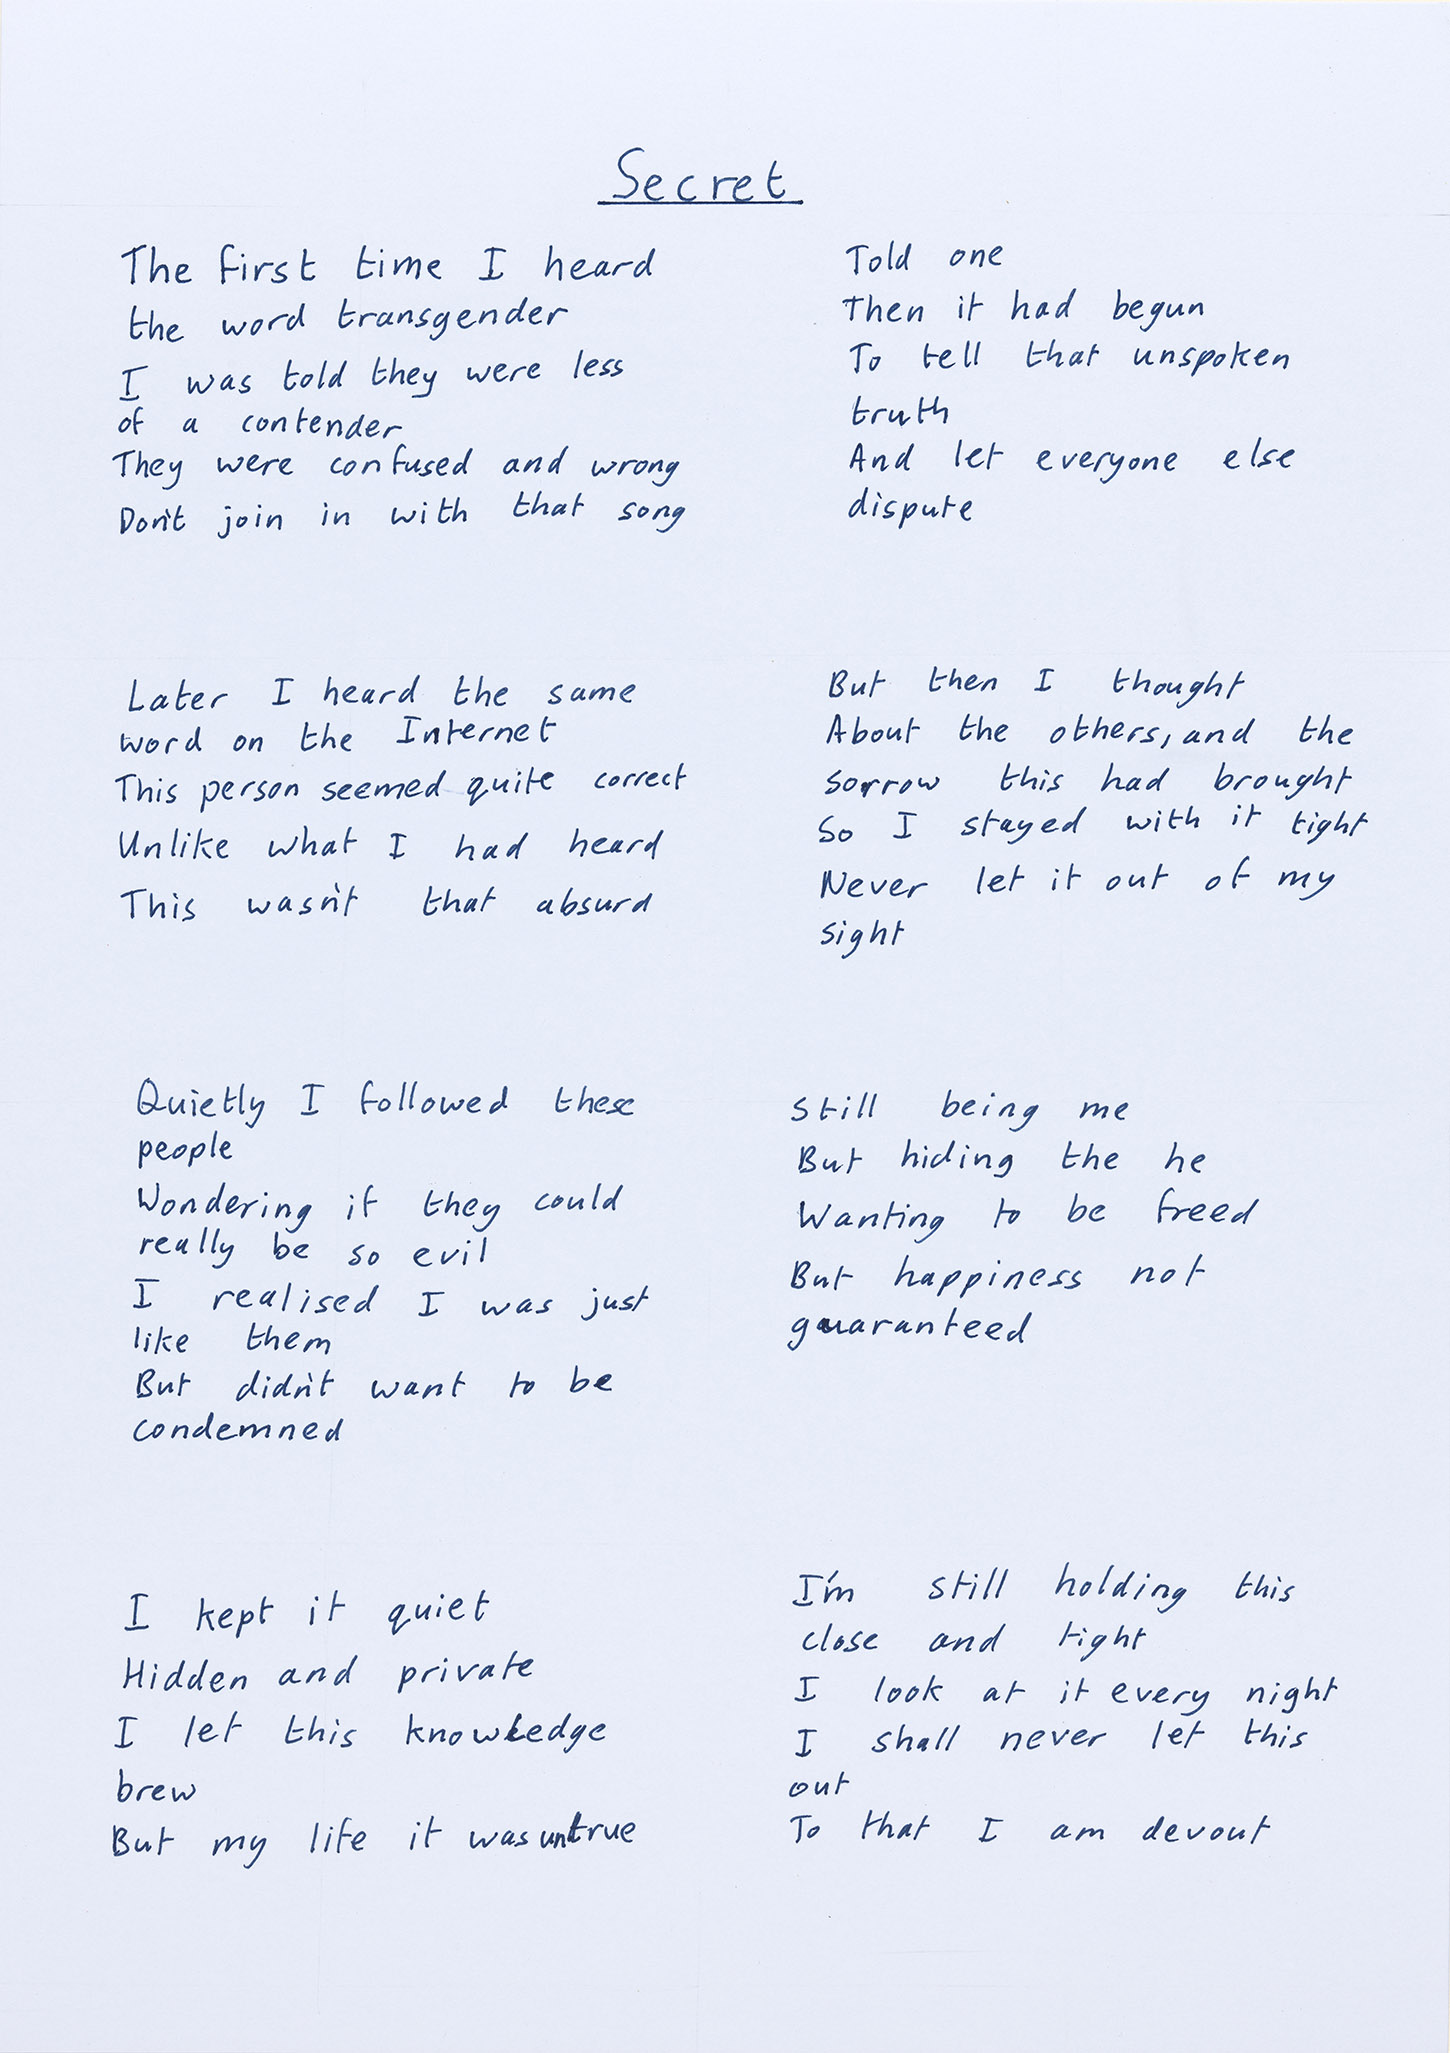 Secret
The first time I heard
the word transgender
I was told they were less
of a contender
They were confused and wrong
Don't join in with that song
Later I heard the same
word on the Internet
This person seemed quite correct
Unlike what I had heard
This wasn't that absurd
Quietly I followed these
people
Wondering if they could
really be so evil
I realised I was just
like them
But didn't want to be
condemned
I kept it quiet
Hidden and private
I let this knowledge
brew
But my life it was untrue
Told one
Then it had begun
To tell that unspoken
truth
And let everyone else
dispute
But then I thought
About the others, and the
sorrow this had brought
So I stayed with it tight
Never let it out of my
sight
Still being me
But hiding the he
Wanting to be freed
But happiness not
guaranteed
I'm still holding this
close and tight
I look at it every night
I shall never let this
out
To that I am devout